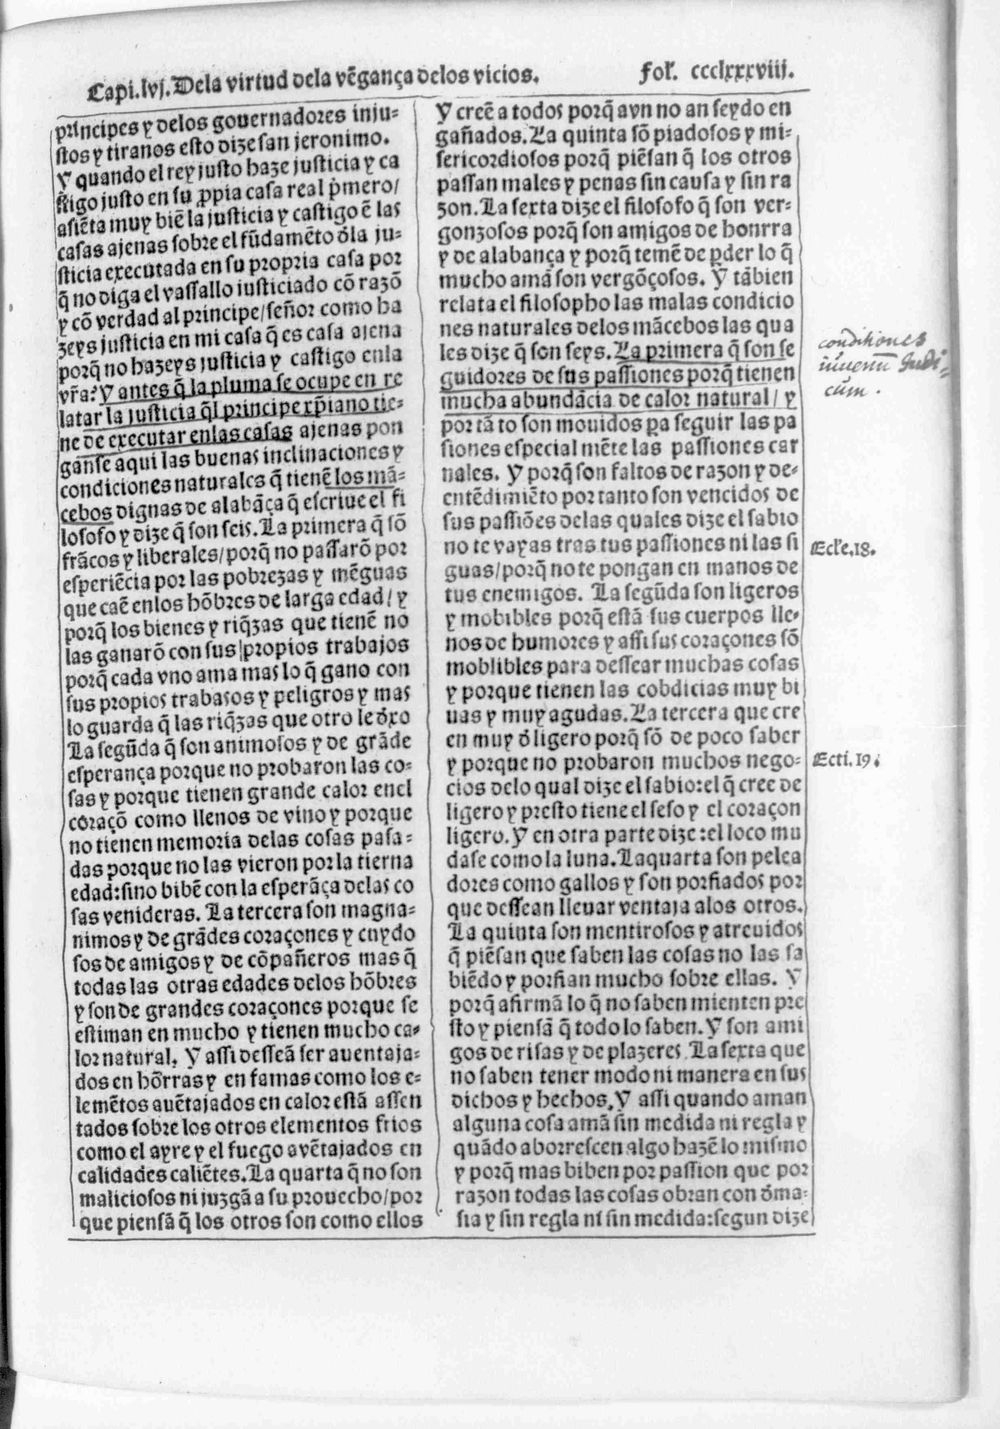 Capi.lvj. Dela virtud dela vẽgança delos vicios.
Fol. ccclxxxviij.
principes y delos gouernadores inju-
stos y tiranos esto dize san jeronimo.
Y quando el rey justo haze justicia y ca
stigo justo en su ꝓpia casa real pͥmero/
asiẽta muy biẽ la justicia y castigo ẽ las
casas ajenas sobre el fũdamẽto đla ju-
sticia executada en su propria casa por
q̃ no diga el vassallo iusticiado cõ razõ
y cõ verdad al principe/señor como ha
zeys justicia en mi casa q̃ es casa ajena
porq̃ no hazeys justicia y castigo enla
vr̃a? Y antes q̃ la pluma se ocupe en re
latar la justicia q̃l principe xp̃iano tie-
ne de executar enlas casas ajenas pon
ganse aqui las buenas inclinaciones y
condiciones naturales q̃ tienẽ los mã-
cebos dignas de alabãça q̃ escriue el fi
losofo y dize q̃ son seis. La primera q̃ sõ
frãcos y liberales/porq̃ no passarõ por
esperiẽcia por las pobrezas y mẽguas
que caẽ enlos hõbres de larga edad/y
porq̃ los bienes y riq̃zas que tienẽ no
las ganarõ con sus propios trabajos
porq̃ cada vno ama mas lo q̃ gano con
sus propios trabajos y peligros y mas
lo guarda q̃ las riq̃zas que otro le đxo
La segũda q̃ son animosos y de grãde
esperança porque no probaron las co-
sas y porque tienen grande calor enel
coraçõ como llenos de vino y porque
no tienen memoria delas cosas pasa-
das porque no las vieron por la tierna
edad: sino bibẽ con la esperãça delas co
sas venideras. La tercera son magna-
nimos y de grãdes coraçones y cuydo
sos de amigos y de cõpañeros mas q̃
todas las otras edades delos hõbres
y son de grandes coraçones porque se
estiman en mucho y tienen mucho ca-
lor natural. Y assi desseã ser auentaja-
dos en hõrras y en famas como los e-
lemẽtos auẽtajados en calor estã assen
tados sobre los otros elementos frios
como el ayre y el fuego avẽtajados en
calidades caliẽtes. La quarta q̃ no son
maliciosos ni juzgã a su prouecho/por
que piensã q̃ los otros son como ellos
Y creẽ a todos porq̃ avn no an seydo en
gañados. La quinta sõ piadosos y mi-
sericordiosos porq̃ piẽsan q̃ los otros
passan males y penas sin causa y sin ra
zon. La sexta dize el filosofo q̃ son ver-
gonzosos porq̃ son amigos de honrra
y de alabança y porq̃ temẽ de ꝑder lo q̃
mucho amã son vergõçosos. Y tãbien
relata el filosopho las malas condicio
nes naturales delos mãcebos las qua
les dize q̃ son seys. La primera q̃ son se
guidores de sus passiones porq̃ tienen
mucha abundãcia de calor natural/ y
por tãto son mouidos ꝑa seguir las pa
siones especial mẽte las passiones car
nales. Y porq̃ son faltos de razon y de-
entẽdimiẽto por tanto son vencidos de
sus passiões delas quales dize el sabio
no te vayas tras tus passiones ni las si
guas/porq̃ no te pongan en manos de
tus enemigos. La segũda son ligeros
y mobibles porq̃ estã sus cuerpos lle-
nos de humores y assi sus coraçones sõ
moblibles para dessear muchas cosas
y porque tienen las cobdicias muy bi
uas y muy agudas. La tercera que cre
en muy đ ligero porq̃ sõ de poco saber
y porque no probaron muchos nego-
cios delo qual dize el sabio: el q̃ cree de
ligero y presto tiene el seso y el coraçon
ligero. Y en otra parte dize: el loco mu
dase como la luna. La quarta son pelea
dores como gallos y son porfiados por
que dessean lleuar ventaja alos otros.
La quinta son mentirosos y atreuidos
q̃ piẽsan que saben las cosas no las sa
biẽdo y porfian mucho sobre ellas. Y
porq̃ afirmã lo q̃ no saben mienten pre
sto y piensã q̃ todo lo saben. Y son ami
gos de risas y de plazeres. La sexta que
no saben tener modo ni manera en sus
dichos y hechos. Y assi quando aman
alguna cosa amã sin medida ni regla y
quãdo aborrescen algo hazẽ lo mismo
y porq̃ mas biben por passion que por
razon todas las cosas obran con đma-
sia y sin regla ni sin medida: segun dize
conditiones
iuuenũ Iudi=
cum.
Eccle.18.
Ecti.19.